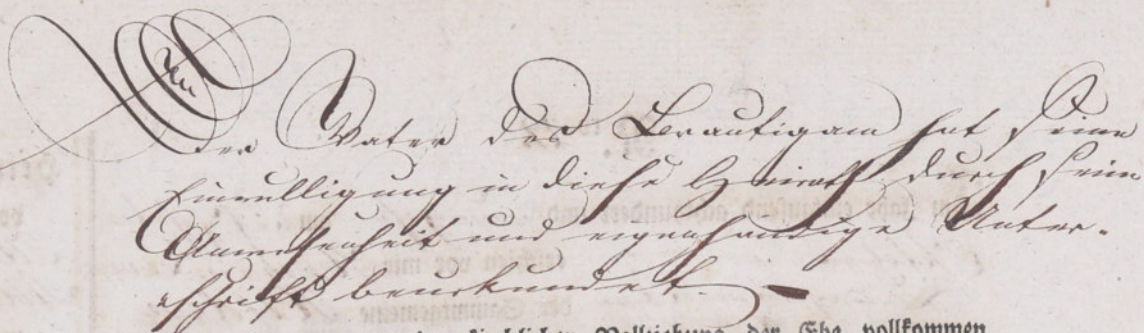 Der Vater des Bräutigam hat seine
Einwilligung in diese Heirath durch seine
Anwesenheit und eigenhändige Unter-
schrift beurkundet. —
kirchlichen Vollziehung der Ehe vollkommen